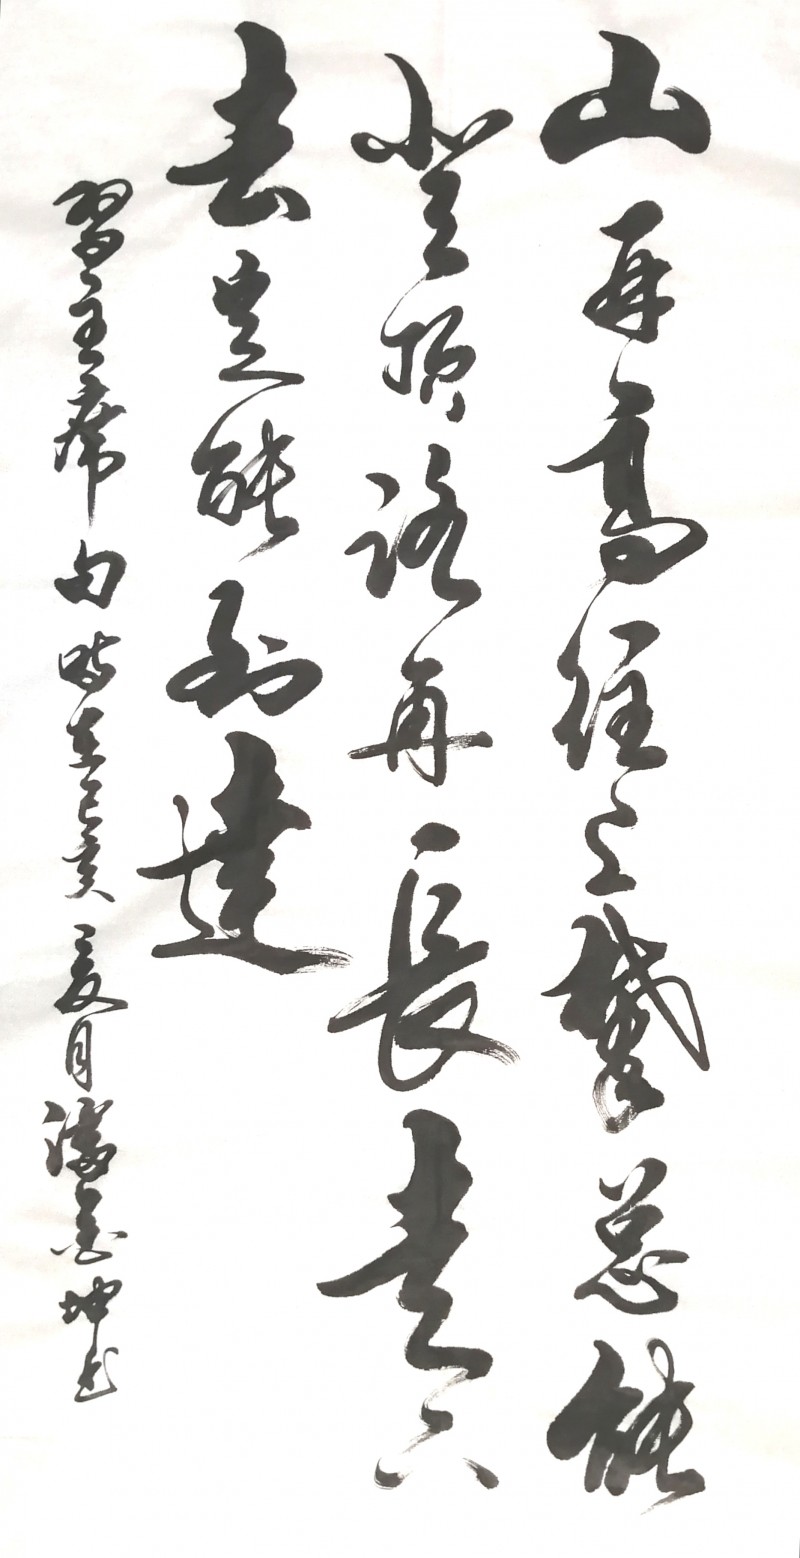 山再高往上攀总能
登顶路再长走下
去定能到達
習主席句时在己亥夏月金坤书